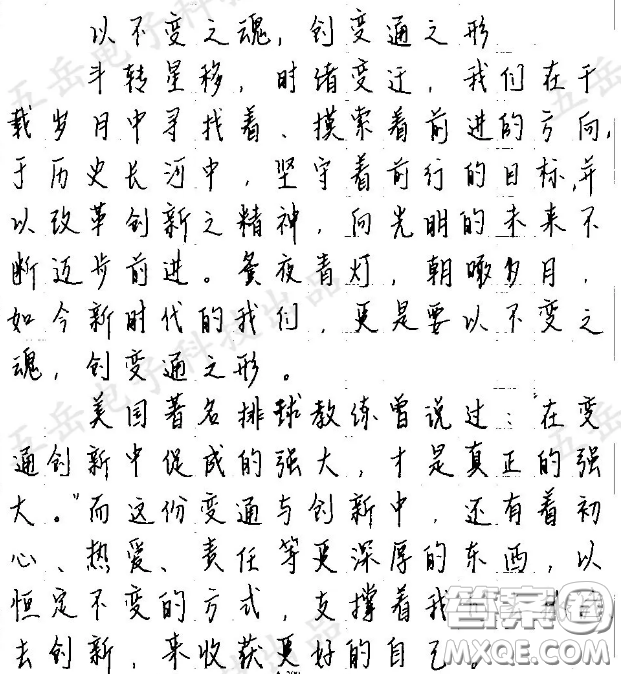 以不变之魂，创变通之形
斗转星移，时绪变迁，我们在千
载岁月中寻找着、摸索着前进的方向，
于历史长河中，坚守着前行的目标，并
以改革创新之精神，向光明的未来不
断迈步前进。餐夜青灯，朝暾夕月，
如今新时代的我们，更是要以不变之
魂，创变通之形。
美国著名排球教练曾说过："在变
通创新中促成的强大，才是真正的强
大。"而这份变通与创新中，还有着初
心、热爱、责任等更深厚的东西，以
恒定不变的方式，支撑着我
去创新，来收获更好的自己。
五岳电子科技出品
答案圈
MXQE.COM